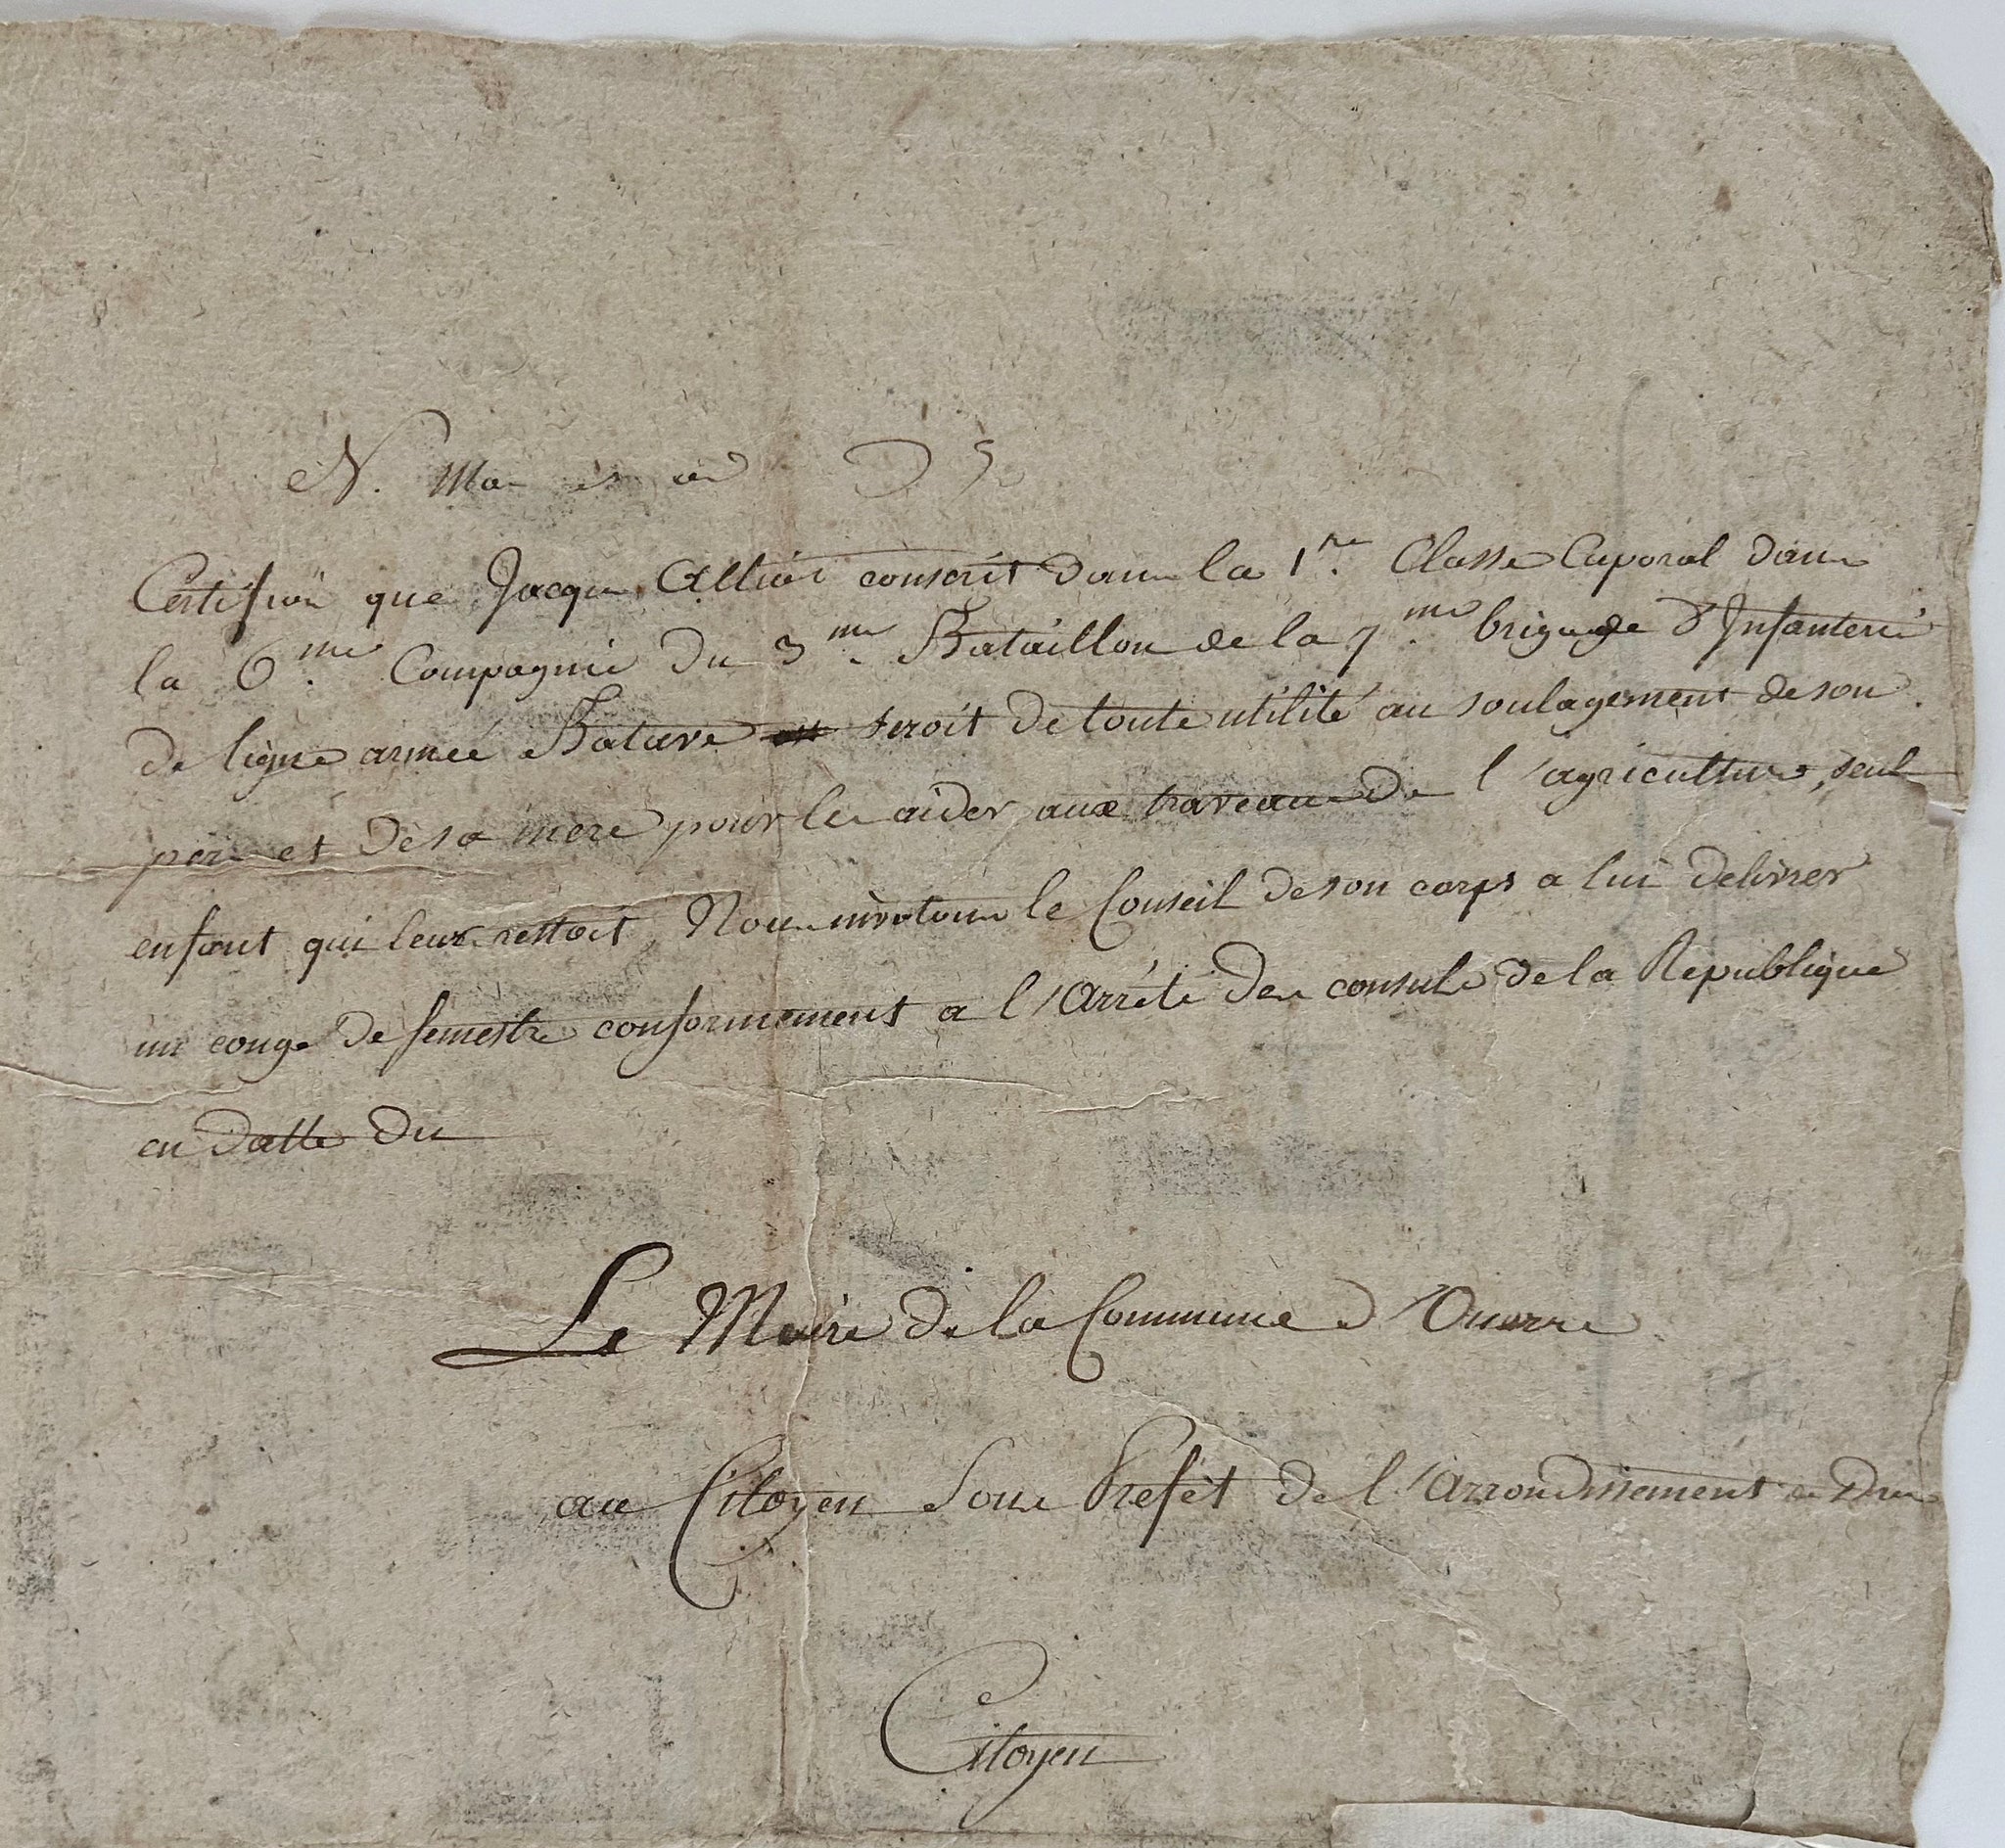 N. Ma
Certifion que Jacque Alliot conscrit dans la 1.re Classe Caporal dans
la 6.me Compagnie du 3.me Bataillon de la 7.me brigade d'Infanterie
de ligne armée Batave seroit de toute utilité au soulagement de son
pere et de sa mere pour les aider aux traveaux de l'agriculture, seul
enfant qui leur restoit, Nous invitons le Conseil de son corps a lui delivrer
un conge de semestre conformement a l'Arrété des consuls de la Republique
en datte du
Le Maire de la Commune d'Ouerre
au Citoyen Sous Prefet de l'Arrondissement de Dreux
Citoyen